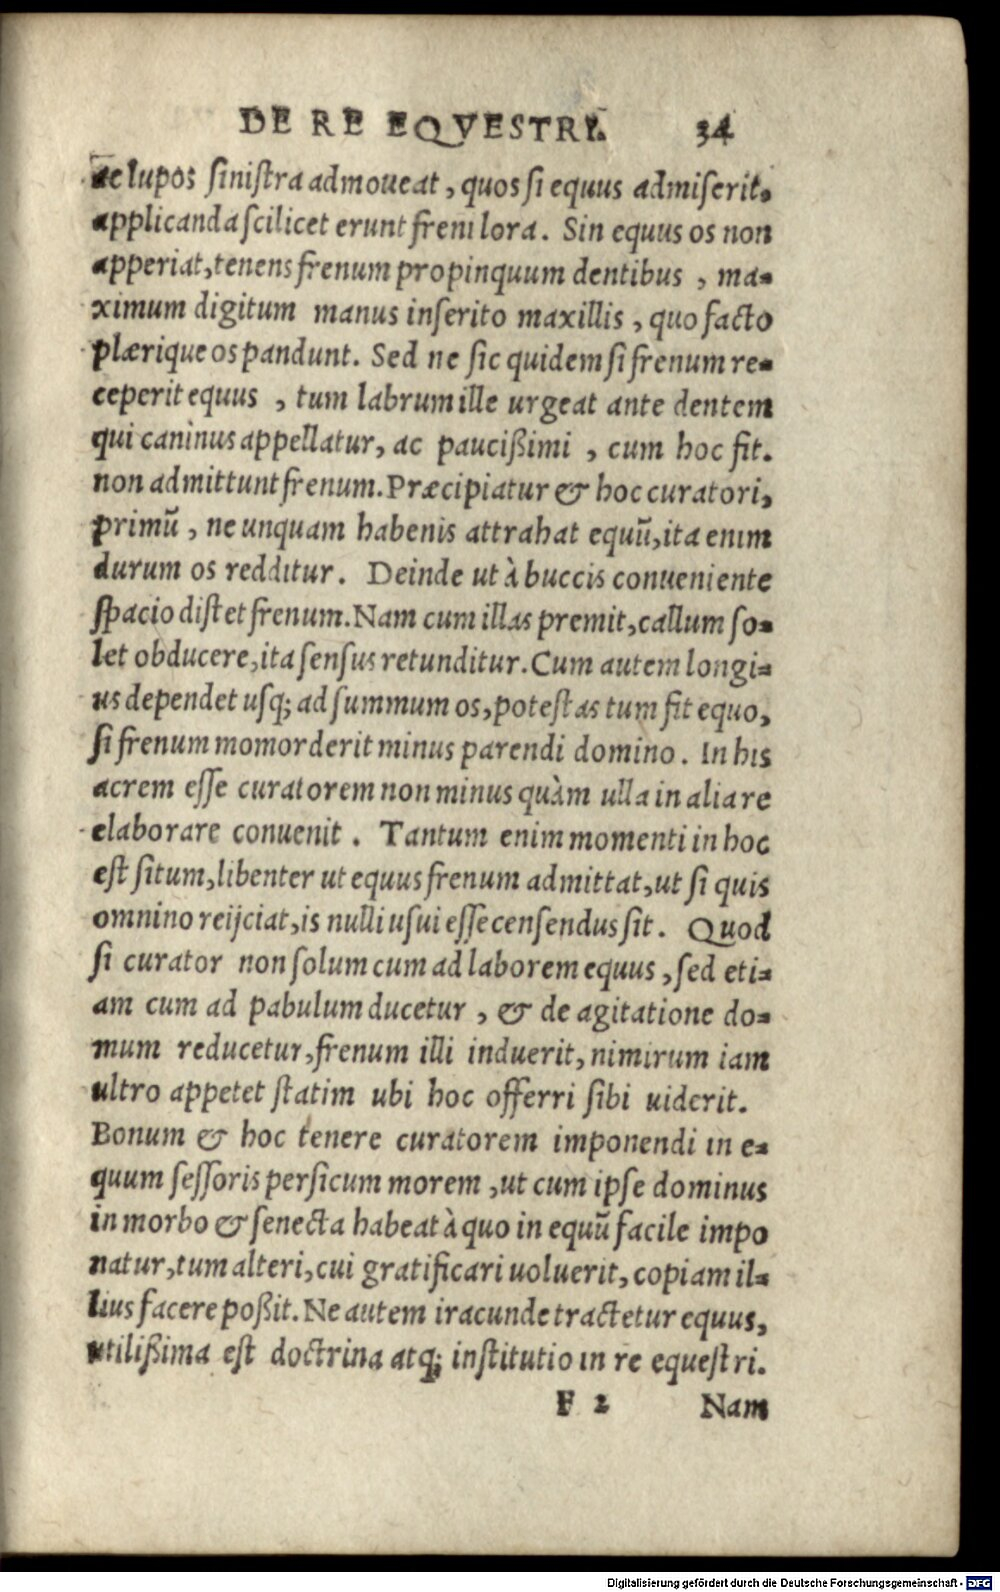 DE RE EQVESTRI. 34
ac lupos sinistra admoueat, quos si equus admiserit,
applicanda scilicet erunt freni lora. Sin equus os non
apperiat, tenens frenum propinquum dentibus, ma-
ximum digitum manus inserito maxillis, quo facto
plærique os pandunt. Sed ne sic quidem si frenum re-
ceperit equus, tum labrum ille urgeat ante dentem
qui caninus appellatur, ac paucißimi, cum hoc fit.
non admittunt frenum. Præcipiatur & hoc curatori,
primũ, ne unquam habenis attrahat equũ, ita enim
durum os redditur. Deinde ut à buccis conueniente
spacio distet frenum. Nam cum illas premit, callum so-
let obducere, ita sensus retunditur. Cum autem longi-
us dependet usq; ad summum os, potestas tum fit equo,
si frenum momorderit minus parendi domino. In his
acrem esse curatorem non minus quàm ulla in alia re
elaborare conuenit. Tantum enim momenti in hoc
est situm, libenter ut equus frenum admittat, ut si quis
omnino reijciat, is nulli usui esse censendus sit. Quod
si curator non solum cum ad laborem equus, sed eti-
am cum ad pabulum ducetur, & de agitatione do-
mum reducetur, frenum illi induerit, nimirum iam
ultro appetet statim ubi hoc offerri sibi uiderit.
Bonum & hoc tenere curatorem imponendi in e-
quum sessoris persicum morem, ut cum ipse dominus
in morbo & senecta habeat à quo in equũ facile impo
natur, tum alteri, cui gratificari uoluerit, copiam il-
lius facere poßit. Ne autem iracunde tractetur equus,
utilißima est doctrina atq; institutio in re equestri.
F 2 Nam
Digitalisierung gefördert durch die Deutsche Forschungsgemeinschaft - DFG